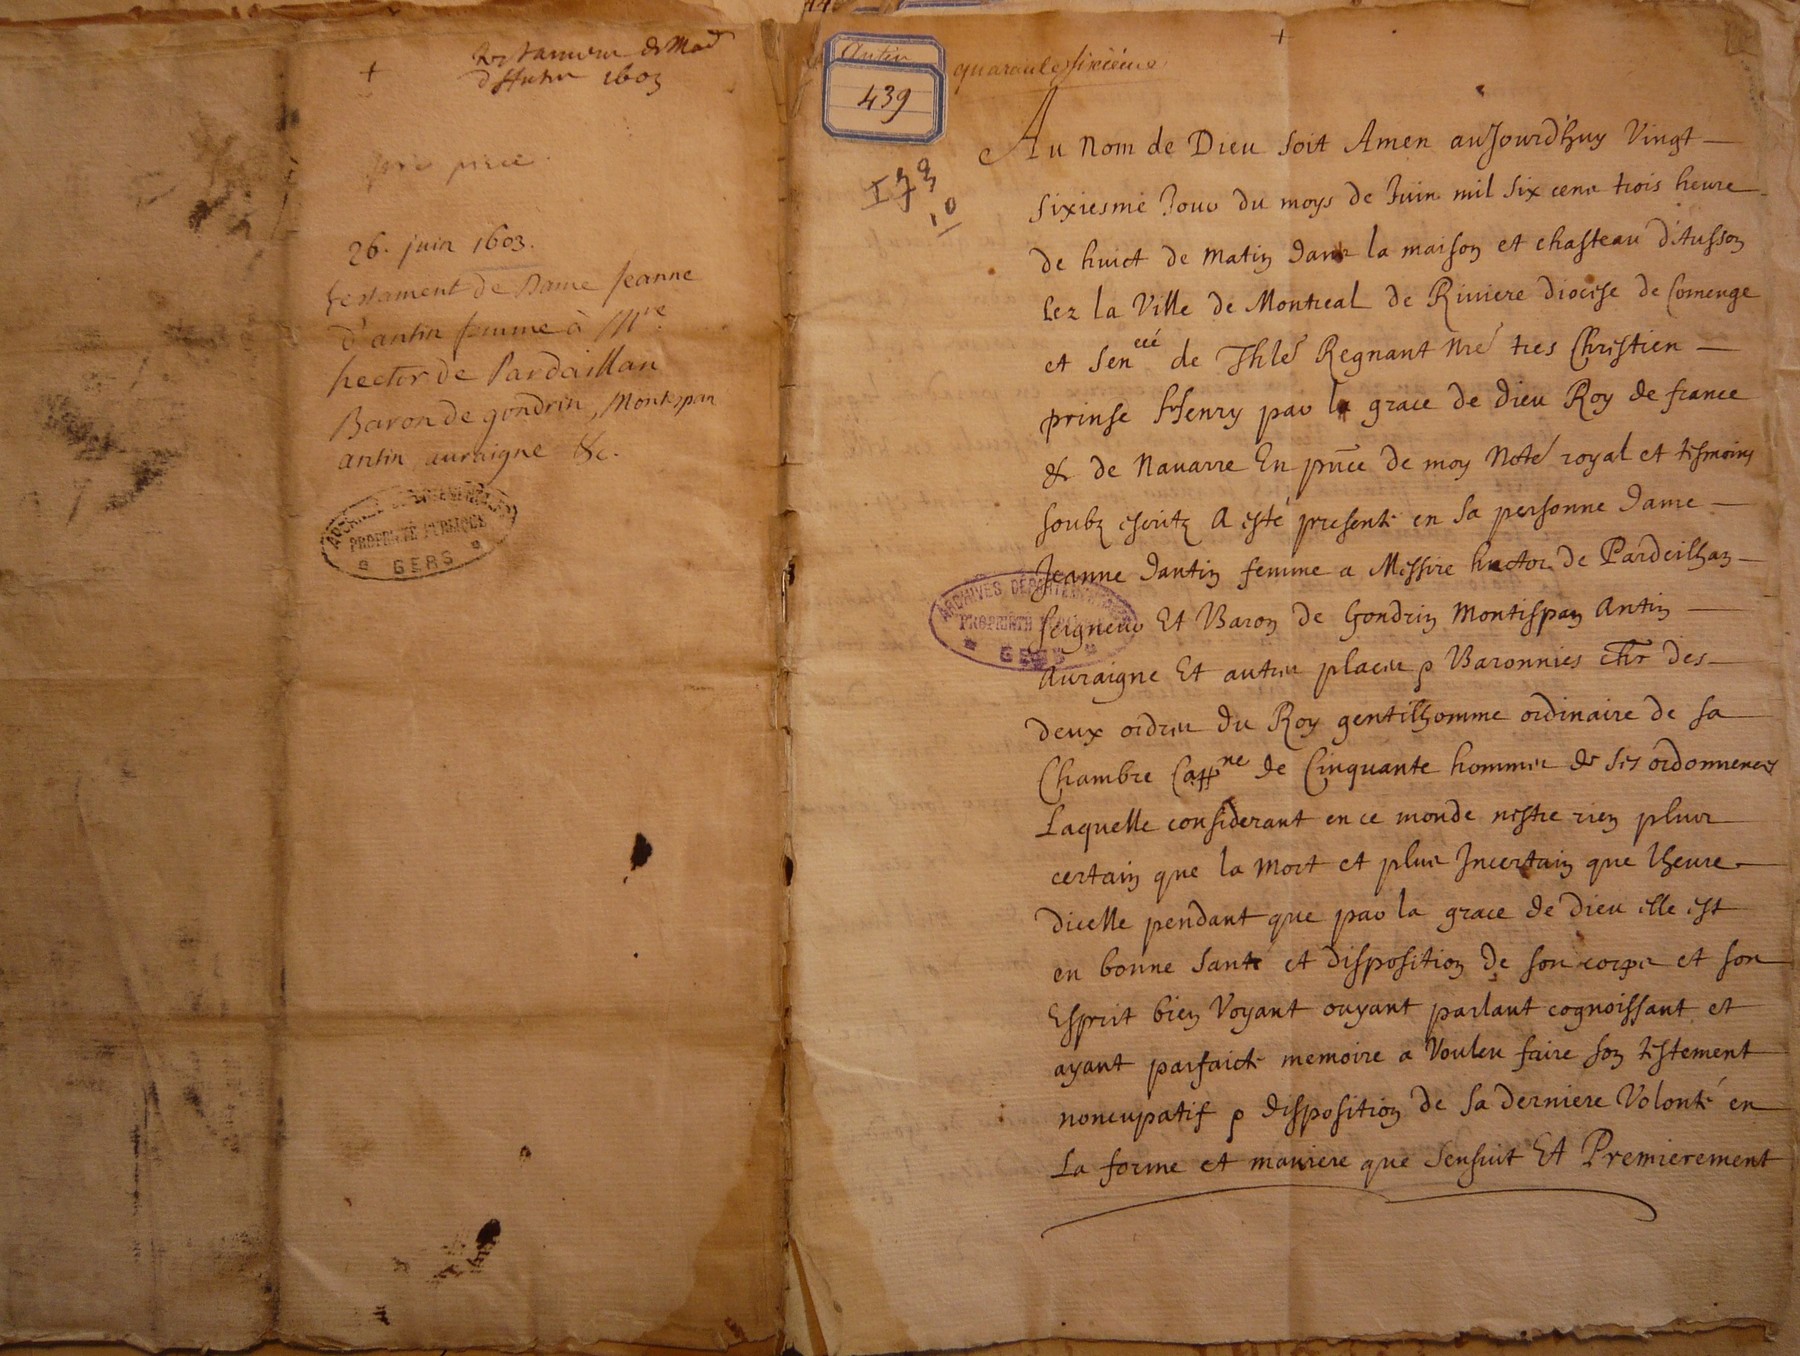 Testament de Mad
d'Antin 1603
pre piece.
26. juin 1603.
testament de Dame Jeanne
d'antin femme à Mre
hector de Pardaillan
Baron de gondrin, Montespan
antin auraigne &c.
ARCHIVES DÉPARTEMENTALES
PROPRIÉTÉ PUBLIQUE
GERS
Antin
439
quarante sixième
173
10
Au Nom de Dieu soit Amen aujourd'huy Vingt
sixiesme Jour du moys de Juin mil six cens trois heure
de huict de Matin dans la maison et chasteau d'Ausson
Lez la Ville de Montreal de Riviere diocese de Comenge
et Sencée de Thle Regnant Nre tres Chrestien
prinse Henry par la grace de Dieu Roy de france
& de Navarre En pnce de moy Note royal et tesmoins
soubz escritz A esté presente en sa personne Dame
Jeanne Dantin femme a Messire hector de Pardeilhan
ARCHIVES DÉPARTEMENTALES
PROPRIÉTÉ PUBLIQUE
GERS
seigneur Et Baron de Gondrin Montespan Antin
Auraigne Et autres places & Baronnies chr des
deux ordres du Roy gentilhomme ordinaire de sa
Chambre Cappne de Cinquante hommes de ses ordonnences
Laquelle considerant en ce monde nestre rien plus
certain que la Mort et plus Incertain que lheure
dicelle pendant que par la grace de Dieu elle est
en bonne Sante et disposition de son corps et son
Esprit bien Voyant ouyant parlant cognoissant et
ayant parfaicte memoire a Vouleu faire son testement
noncupatif & disposition de sa derniere Volonté en
La forme et maniere que sensuit Et Premierement